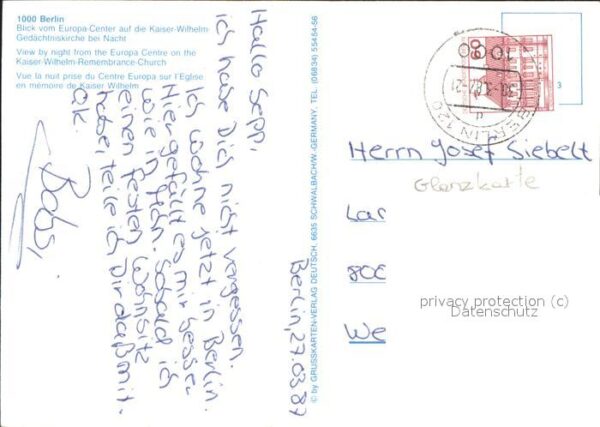 1000 Berlin
Blick vom Europa-Center auf die Kaiser-Wilhelm-
Gedächtniskirche bei Nacht
View by night from the Europa Centre on the
Kaiser-Wilhelm-Remembrance-Church
Vue la nuit prise du Centre Europa sur l'Eglise
en mémoire de Kaiser Wilhelm
Berlin, 27.03.87
Hallo Sepp,
ich habe Dich nicht vergessen.
Ich wohne jetzt in Berlin.
Hier gefällt es mir besser
wie in
Sobald ich
einen festen Wohnsitz
habe, teile ich Dir daß mit.
Ok.
Babsi
© by GRUSSKARTEN-VERLAG DEUTSCH, 6635 SCHWALBACH/W.-GERMANY, TEL. (06834) 55454-56
1000
BERLIN 120
60
3
Herrn Josef Siebelt
Glanzkarte
Lar
800
We
privacy protection (c)
Datenschutz